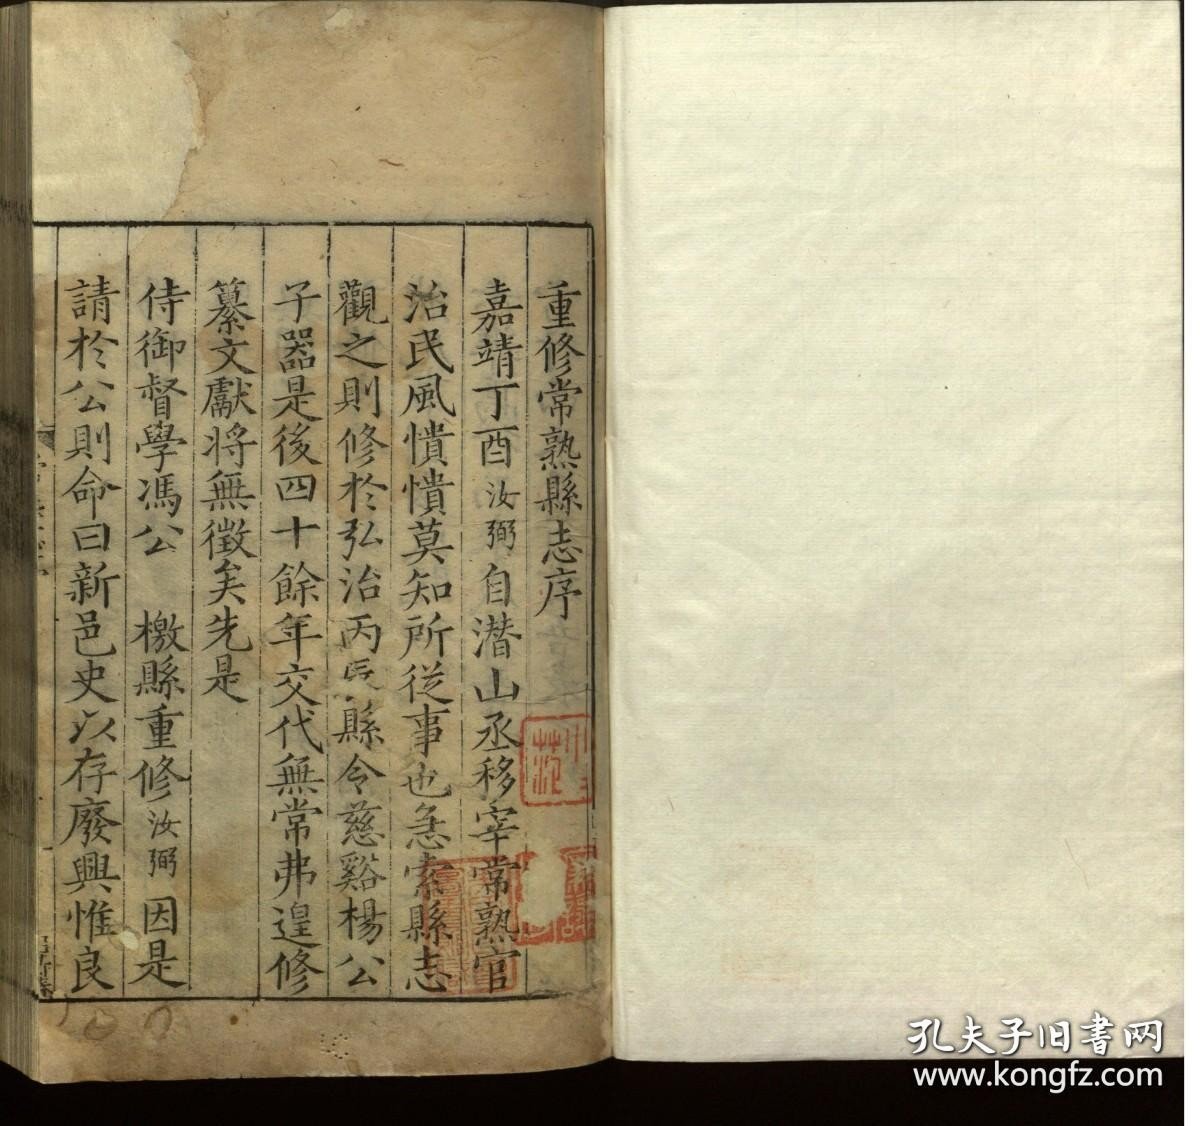 重修常熟縣志序
嘉靖丁酉汝弼自潛山丞移宰常熟官
治民風憒憒莫知所從事也亟索縣志
觀之則修於弘治丙辰縣令慈谿楊公
子器是後四十餘年交代無常弗遑修
纂文獻將無徵矣先是
侍御督學馮公　檄縣重修汝弼因是
請於公則命曰新邑史以存廢興惟良
孔夫子旧书网
www.kongfz.com